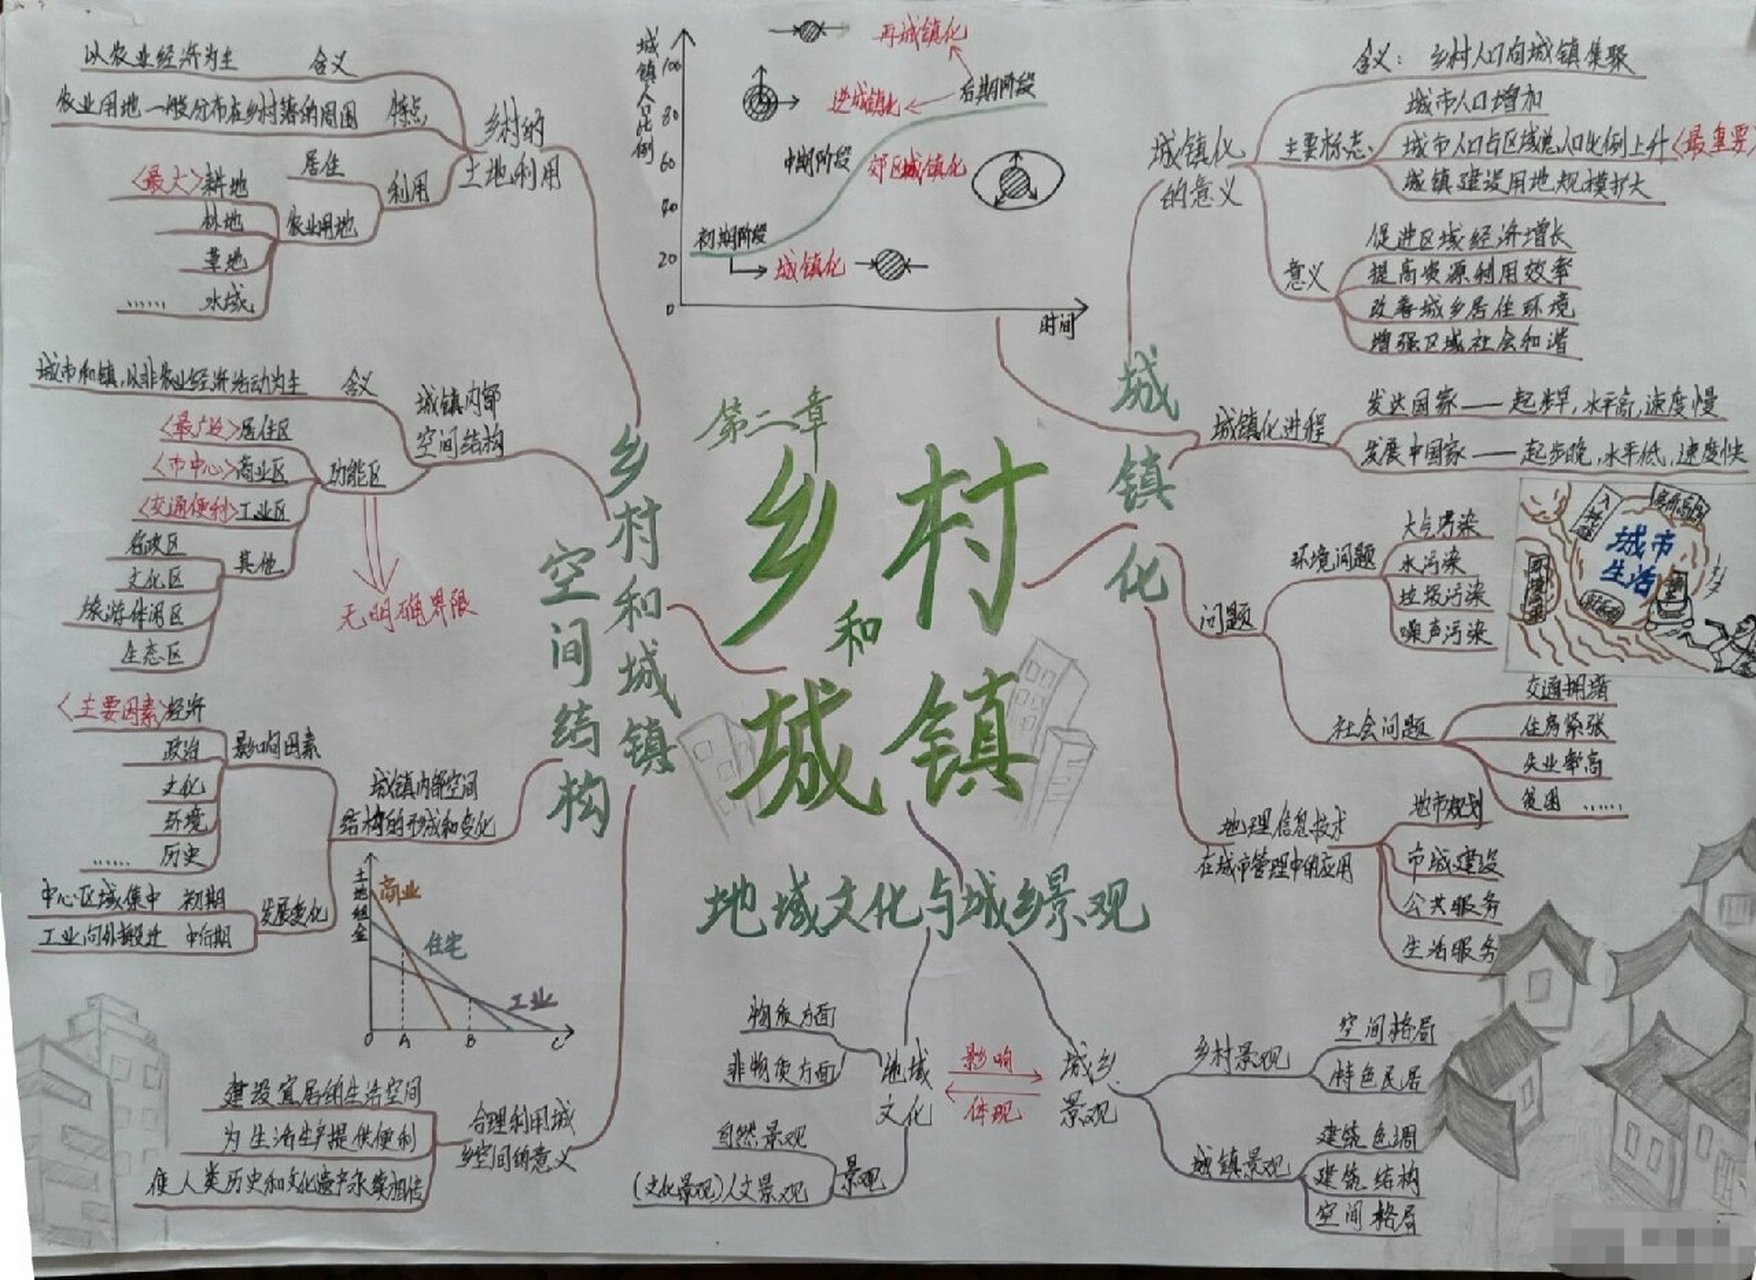 第二章
乡村
和
城镇
乡村和城镇
空间结构
乡村的
土地利用
含义
以农业经济为主
特点
农业用地一般分布在乡村落的周围
利用
居住
农业用地
<最大>耕地
林地
草地
水域
……
城镇内部
空间结构
含义
城市和镇,以非农业经济活动为主
功能区
<最广泛>居住区
<市中心>商业区
<交通便利>工业区
其他
行政区
文化区
旅游休闲区
生态区
无明确界限
城镇内部空间
结构的形成和变化
影响因素
<主要因素>经济
政治
文化
环境
历史
……
发展变化
中心区域集中 初期
工业向外搬迁 中后期
土地租金
商业
住宅
工业
O
A
B
C
合理利用城
乡空间的意义
建设宜居的生活空间
为生活生产提供便利
使人类历史和文化遗产永续相传
城镇人口比例
100
80
60
40
20
0
时间
初期阶段
城镇化
中期阶段
郊区城镇化
后期阶段
逆城镇化
再城镇化
城镇化
城镇化
的意义
含义: 乡村人口向城镇集聚
主要标志
城市人口增加
城市人口占区域总人口比例上升<最重要>
城镇建设用地规模扩大
意义
促进区域经济增长
提高资源利用效率
改善城乡居住环境
增强区域社会和谐
城镇化进程
发达国家——起步早,水平高,速度慢
发展中国家——起步晚,水平低,速度快
问题
环境问题
大气污染
水污染
垃圾污染
噪声污染
城市
生活
社会问题
交通拥堵
住房紧张
失业率高
贫困 ……
地理信息技术
在城市管理中的应用
城市规划
市城建设
公共服务
生活服务
地域文化与城乡景观
地域
文化
物质方面
非物质方面
景观
自然景观
(文化景观)人文景观
影响
体现
城乡
景观
乡村景观
空间格局
特色民居
城镇景观
建筑色调
建筑结构
空间格局